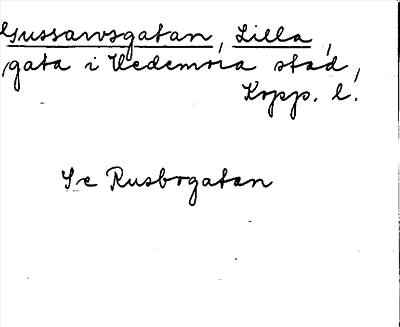 Gussarvsgatan, Lilla,
gata i Hedemora stad,
Kopp. l.
Se Rusbogatan